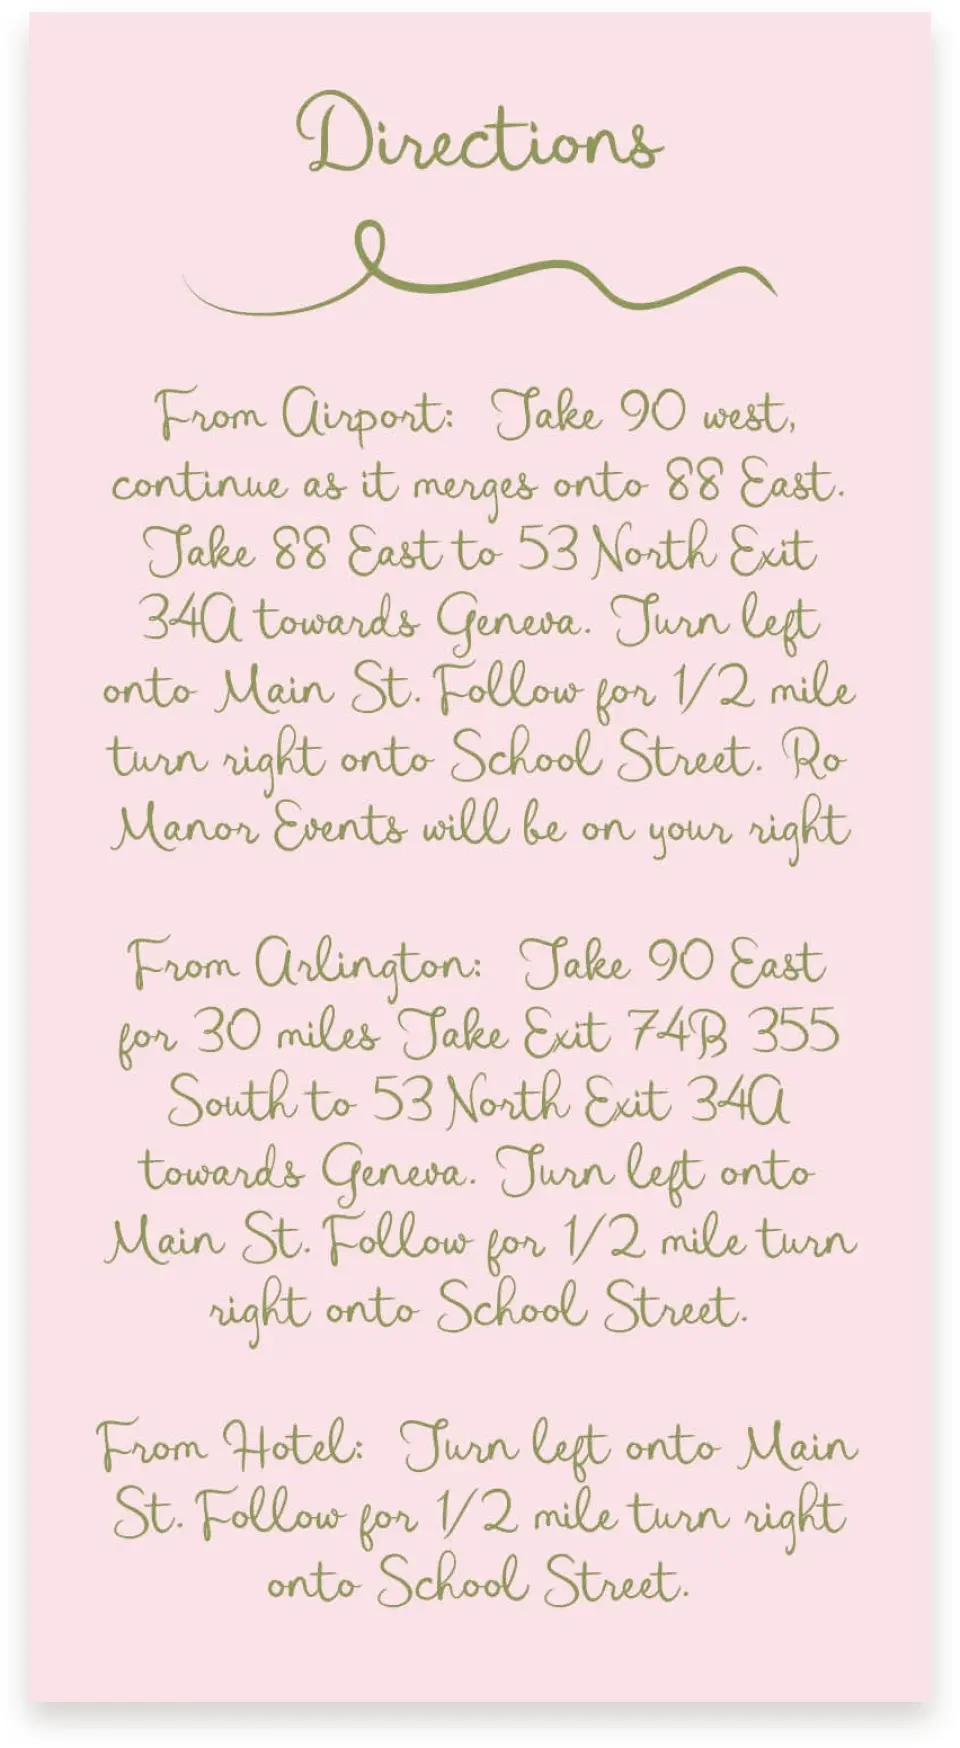 Directions
From Airport: Take 90 west,
continue as it merges onto 88 East.
Take 88 East to 53 North Exit
34A towards Geneva. Turn left
onto Main St. Follow for 1/2 mile
turn right onto School Street. Ro
Manor Events will be on your right
From Arlington: Take 90 East
for 30 miles Take Exit 74B 355
South to 53 North Exit 34A
towards Geneva. Turn left onto
Main St. Follow for 1/2 mile turn
right onto School Street.
From Hotel: Turn left onto Main
St. Follow for 1/2 mile turn right
onto School Street.